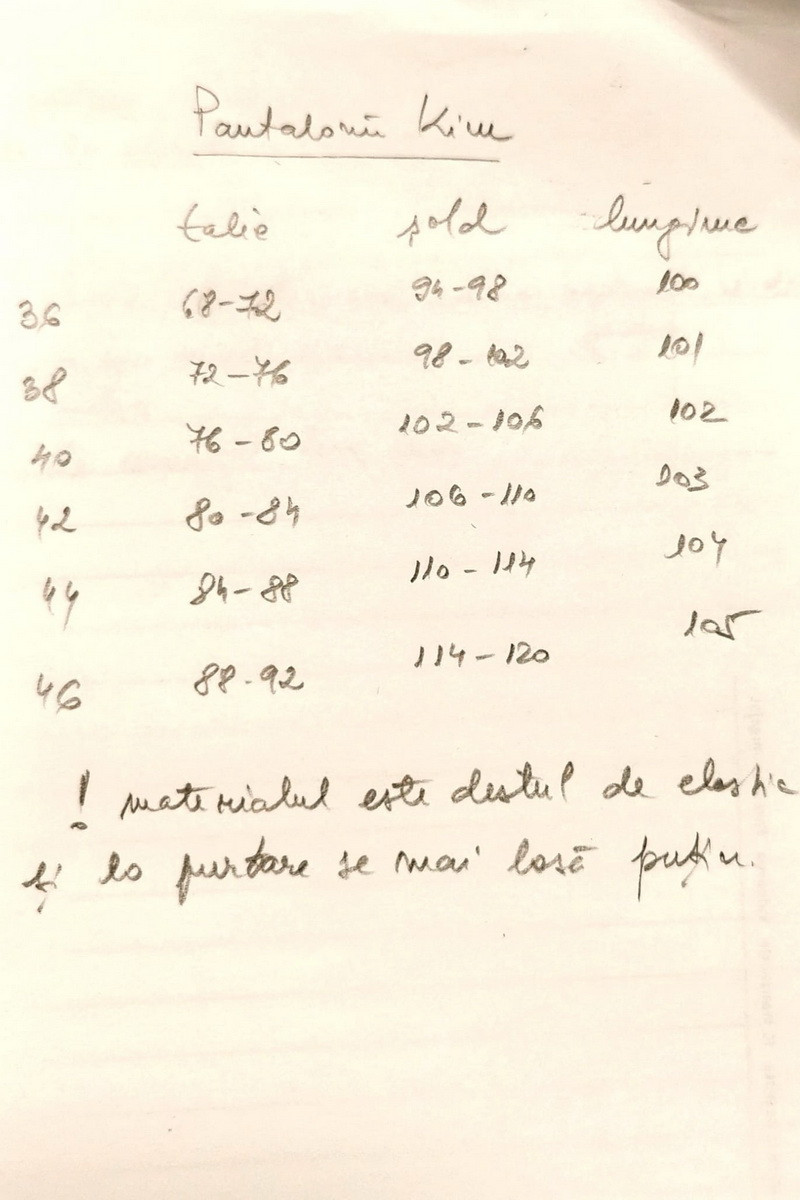 Pantalonii Kim
talie șold lungime
36 68-72 94-98 100
38 72-76 98-102 101
40 76-80 102-106 102
42 80-84 106-110 103
44 84-88 110-114 104
46 88-92 114-120 105
! materialul este destul de elastic
și la purtare se mai lasă puțin.